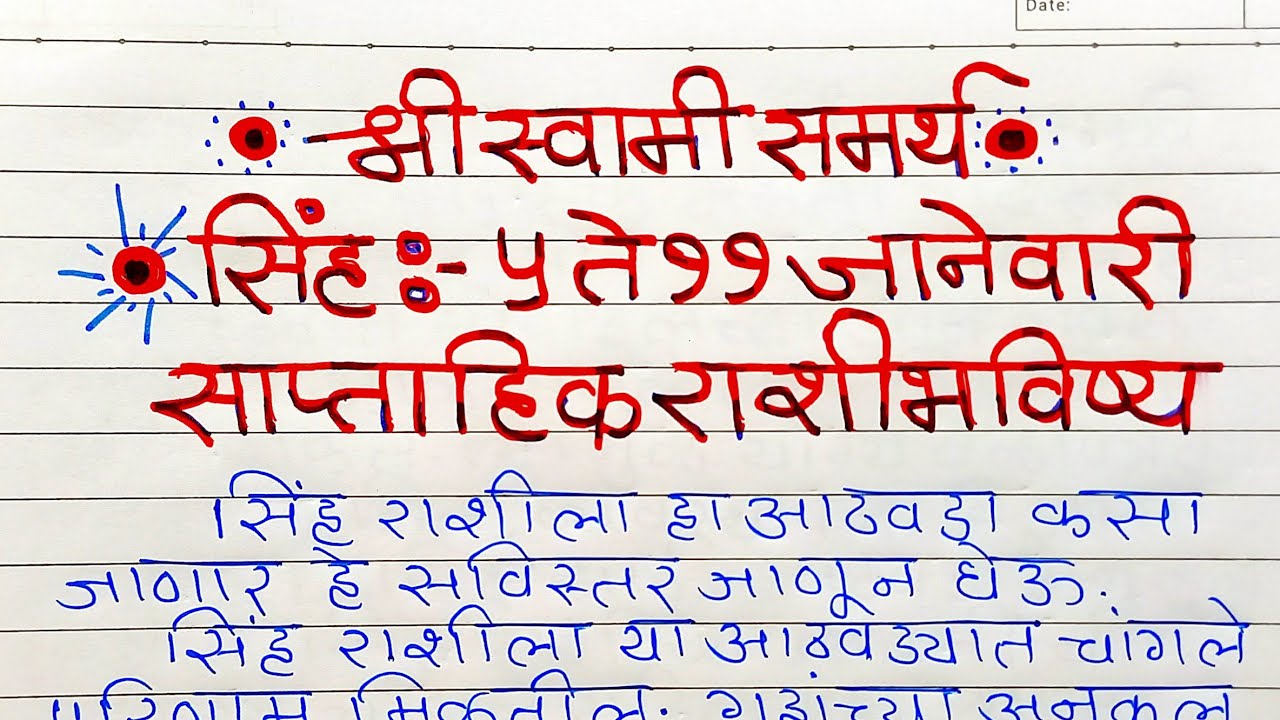 Date:
श्री स्वामी समर्थ
सिंह :- ५ ते ११ जानेवारी
साप्ताहिक राशीभविष्य
सिंह राशीला हा आठवडा कसा
जाणार हे सविस्तर जाणून घेऊ.
सिंह राशीला या आठवड्यात चांगले
परिणाम मिळतील. ग्रहांच्या अनुकूल